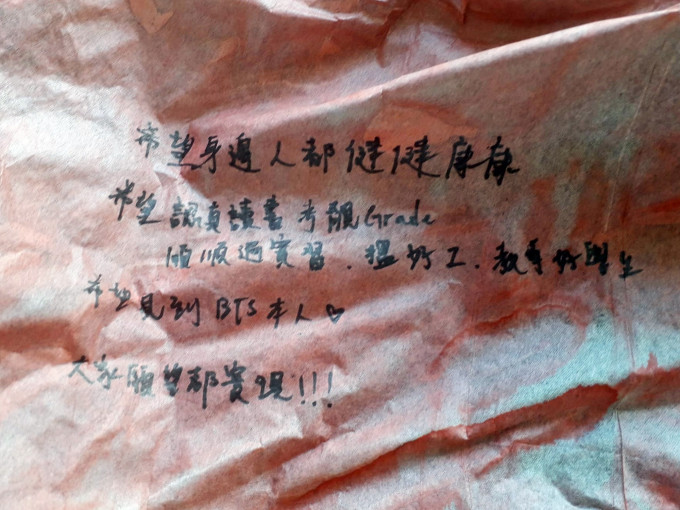 希望身邊人都健健康康
希望認真讀書考靚Grade
順順過實習、搵好工、教導好學生
希望見到BTS本人♡
大家願望都實現!!!